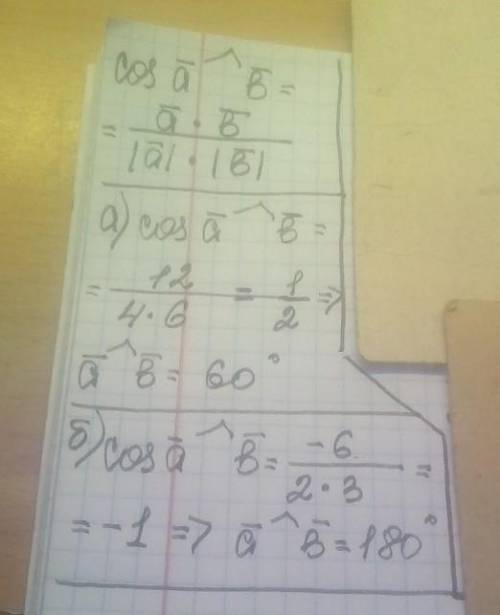 cos ā ^ b̄ =
= ā · b̄ / |ā| · |b̄|
а) cos ā ^ b̄ =
= 12 / 4·6 = 1/2 =>
ā ^ b̄ = 60°
б) cos ā ^ b̄ = -6 / 2·3 =
= -1 => ā ^ b̄ = 180°